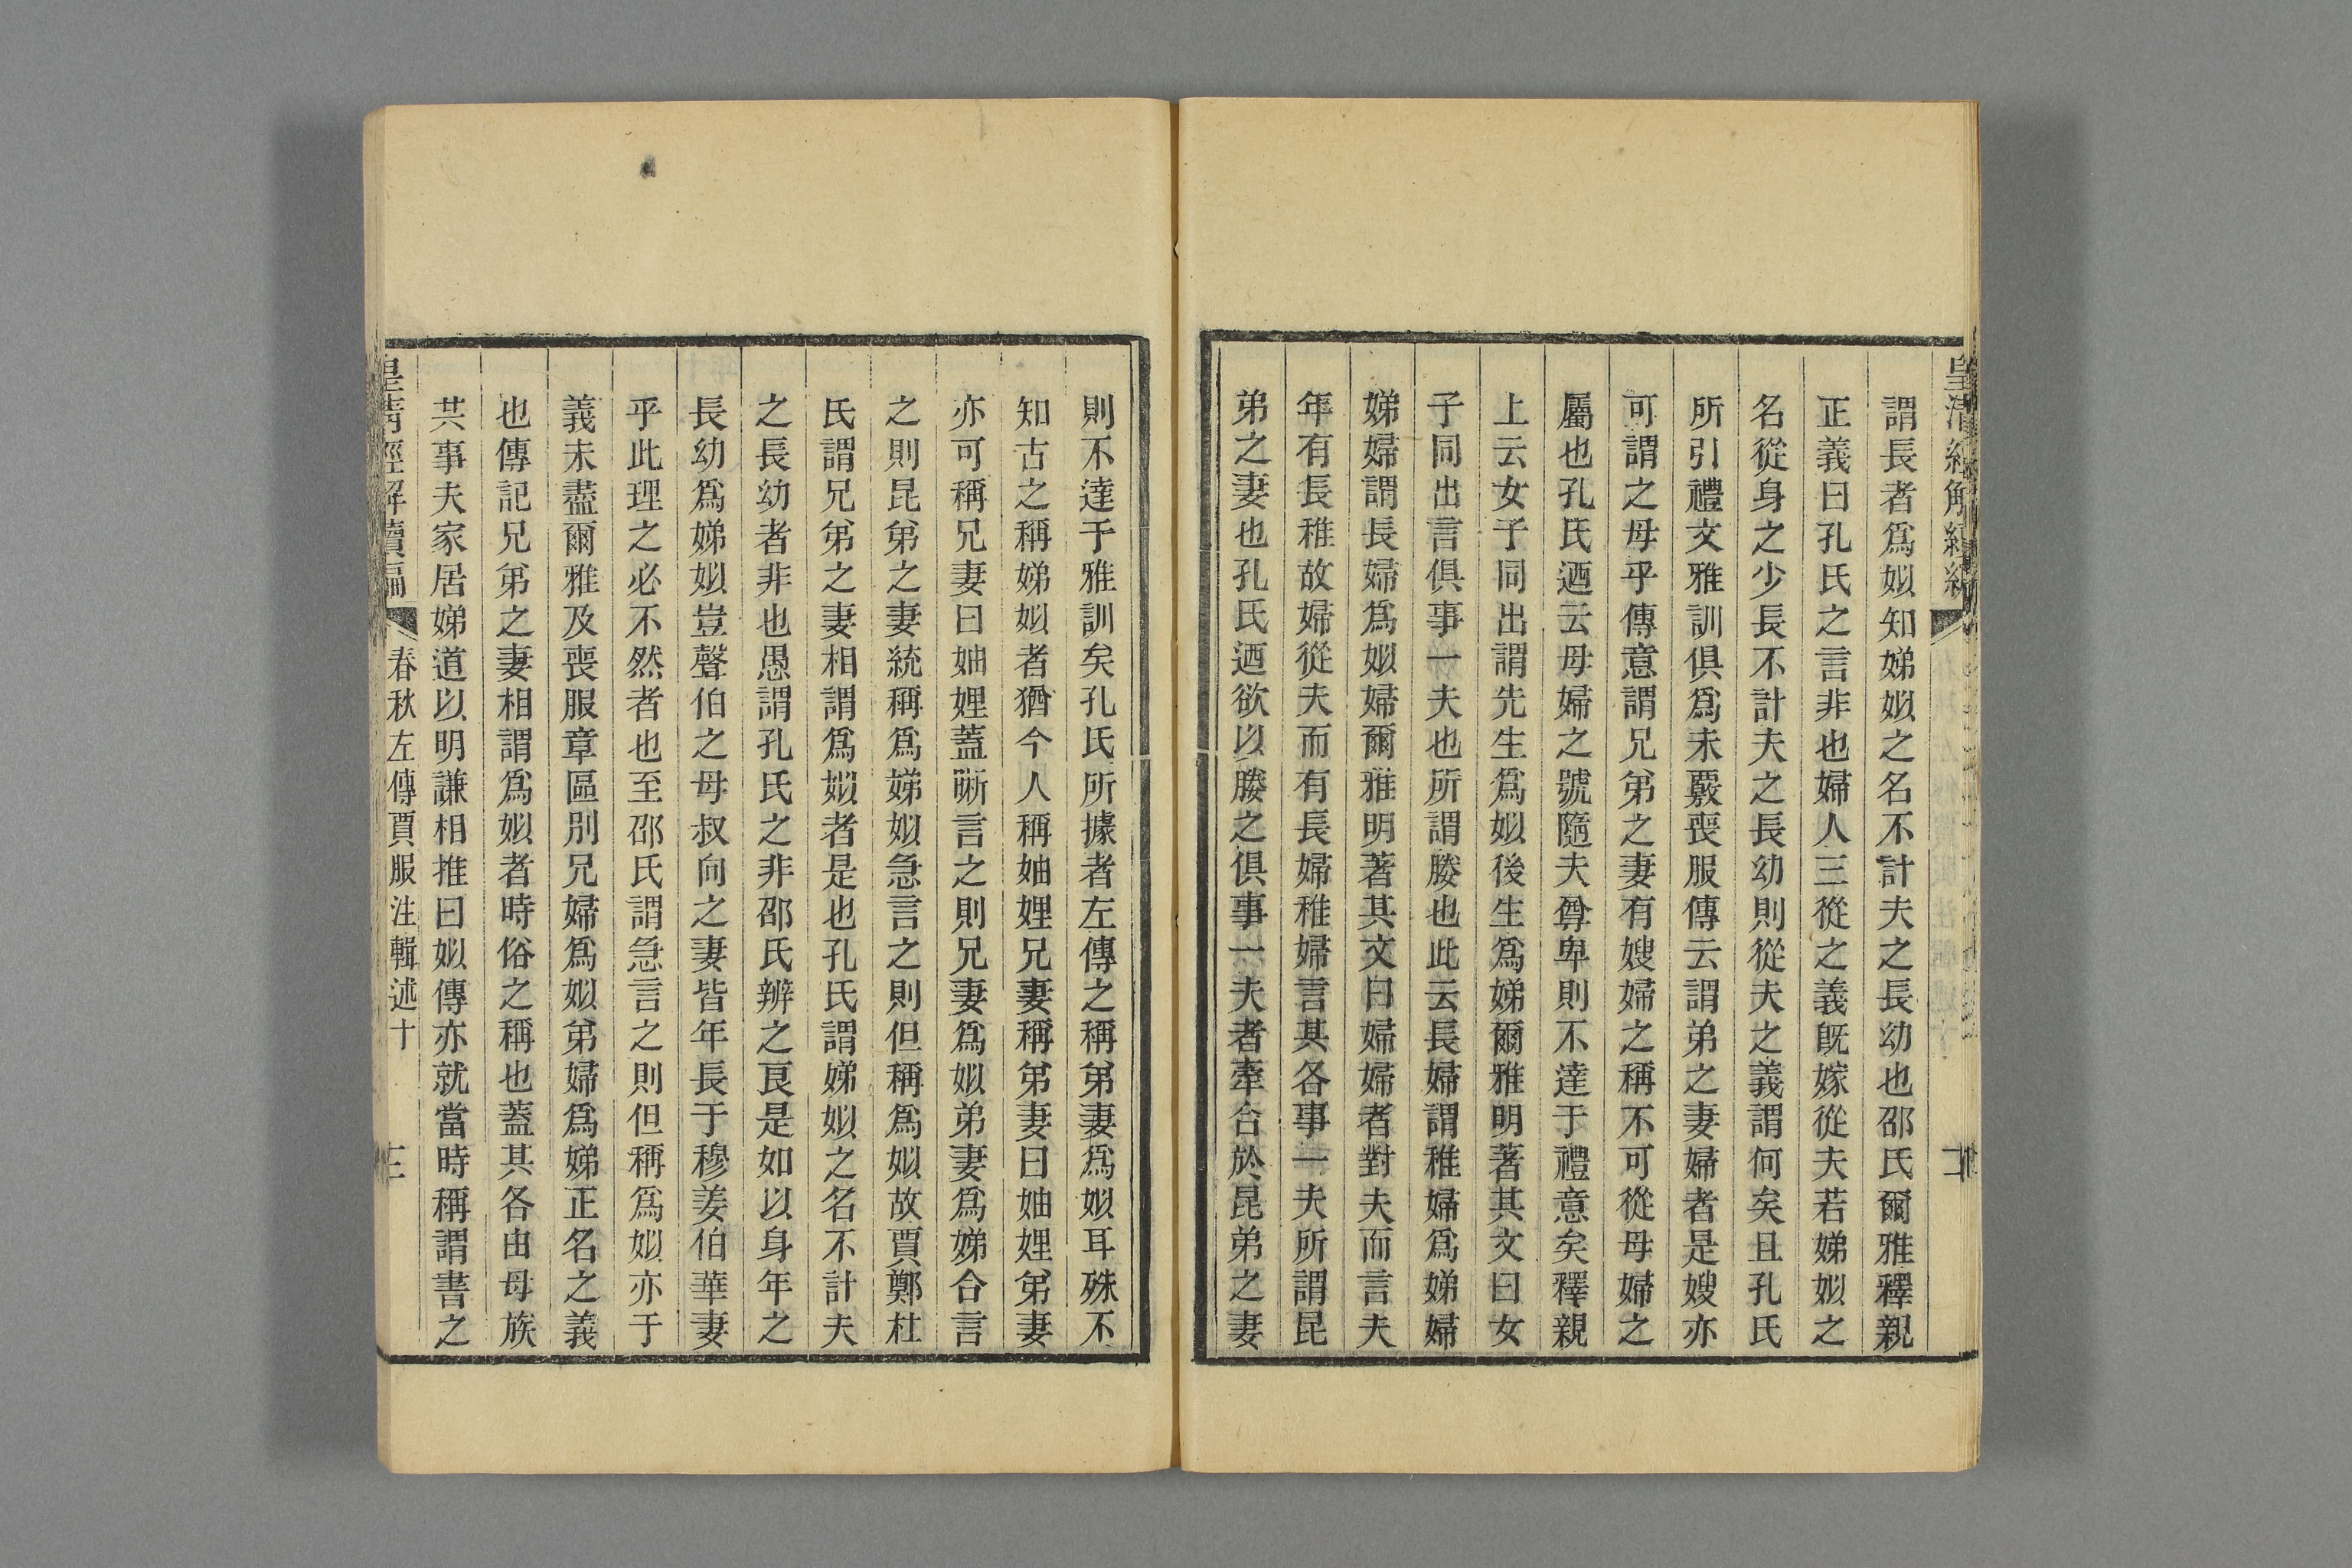 皇清經解續編
謂長者爲姒知娣姒之名不計夫之長幼也邵氏爾雅釋親
正義曰孔氏之言非也婦人三從之義旣嫁從夫若娣姒之
名從身之少長不計夫之長幼則從夫之義謂何矣且孔氏
所引禮文雅訓俱爲未覈喪服傳云謂弟之妻婦者是嫂亦
可謂之母乎傳意謂兄弟之妻有嫂婦之稱不可從母婦之
屬也孔氏迺云母婦之號隨夫尊卑則不達于禮意矣釋親
上云女子同出謂先生爲姒後生爲娣爾雅明著其文曰女
子同出言俱事一夫也所謂媵也此云長婦謂稚婦爲娣婦
娣婦謂長婦爲姒婦爾雅明著其文曰婦婦者對夫而言夫
年有長稚故婦從夫而有長婦稚婦言其各事一夫所謂昆
弟之妻也孔氏迺欲以媵之俱事一夫者牽合於昆弟之妻
則不達于雅訓矣孔氏所據者左傳之稱弟妻爲姒耳殊不
知古之稱娣姒者猶今人稱妯娌兄妻稱弟妻曰妯娌弟妻
亦可稱兄妻曰妯娌蓋晰言之則兄妻爲姒弟妻爲娣合言
之則昆弟之妻統稱爲娣姒急言之則但稱爲姒故賈鄭杜
氏謂兄弟之妻相謂爲姒者是也孔氏謂娣姒之名不計夫
之長幼者非也愚謂孔氏之非邵氏辨之良是如以身年之
長幼爲娣姒豈聲伯之母叔向之妻皆年長于穆姜伯華妻
乎此理之必不然者也至邵氏謂急言之則但稱爲姒亦于
義未盡爾雅及喪服章區別兄婦爲姒弟婦爲娣正名之義
也傳記兄弟之妻相謂爲姒者時俗之稱也蓋其各由母族
共事夫家居娣道以明謙相推曰姒傳亦就當時稱謂書之
皇清經解續編 春秋左傳賈服注輯述十